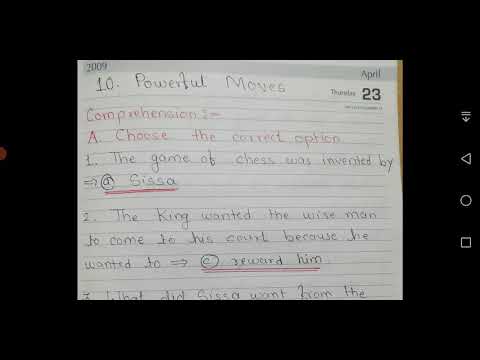 2009
April
Thursday 23
10. Powerful Moves
Comprehension :-
A. Choose the correct option
1. The game of chess was invented by
⇒ (a) Sissa
2. The King wanted the wise man
to come to his court because he
wanted to ⇒ (c) reward him
3. What did Sissa want from the